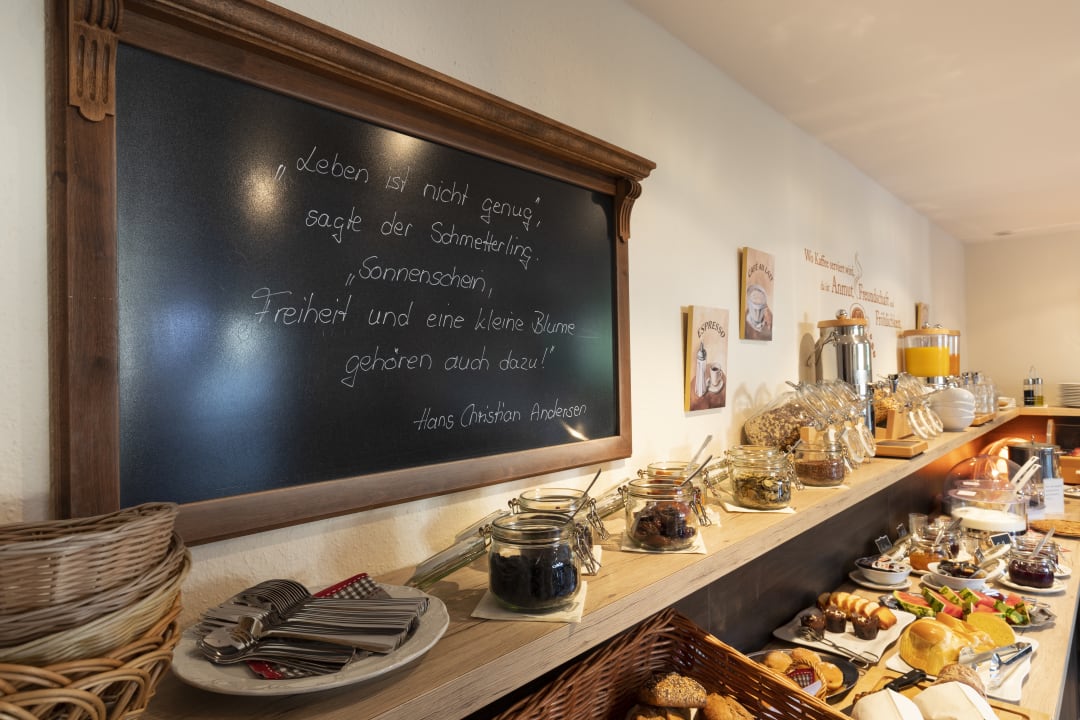 „Leben ist nicht genug“,
sagte der Schmetterling.
„Sonnenschein,
Freiheit und eine kleine Blume
gehören auch dazu!“
Hans Christian Andersen
ESPRESSO
CAFÉ AU LAIT
Wo Kaffee serviert wird,
da ist Anmut, Freundschaft und
Fröhlichkeit